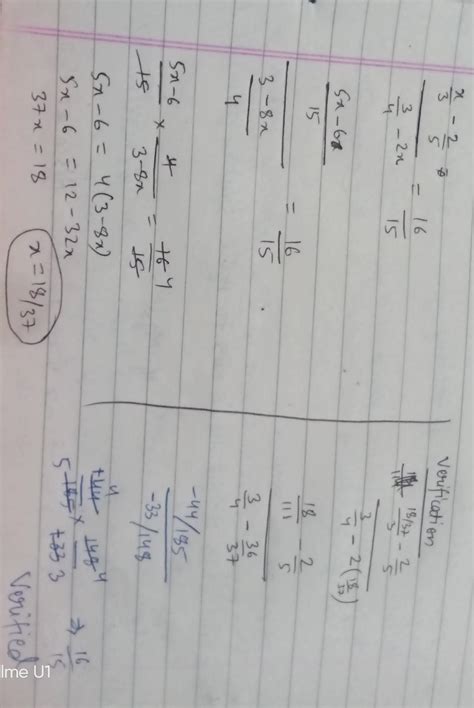 x/3 - 2/5
3/4 - 2x = 16/15
5x-6/15
3-8x/4 = 16/15
5x-6/15 × 4/3-8x = 16 4/15
5x-6 = 4(3-8x)
5x-6 = 12-32x
37x = 18 x = 18/37
Verification
18/37/3 - 2/5
3/4 - 2(18/37)
18/111 - 2/5
3/4 - 36/37
-44/185
-33/148
4 +44/5 185 × 148 4/+33 3 ⇒ 16/15
Verified
lme U1